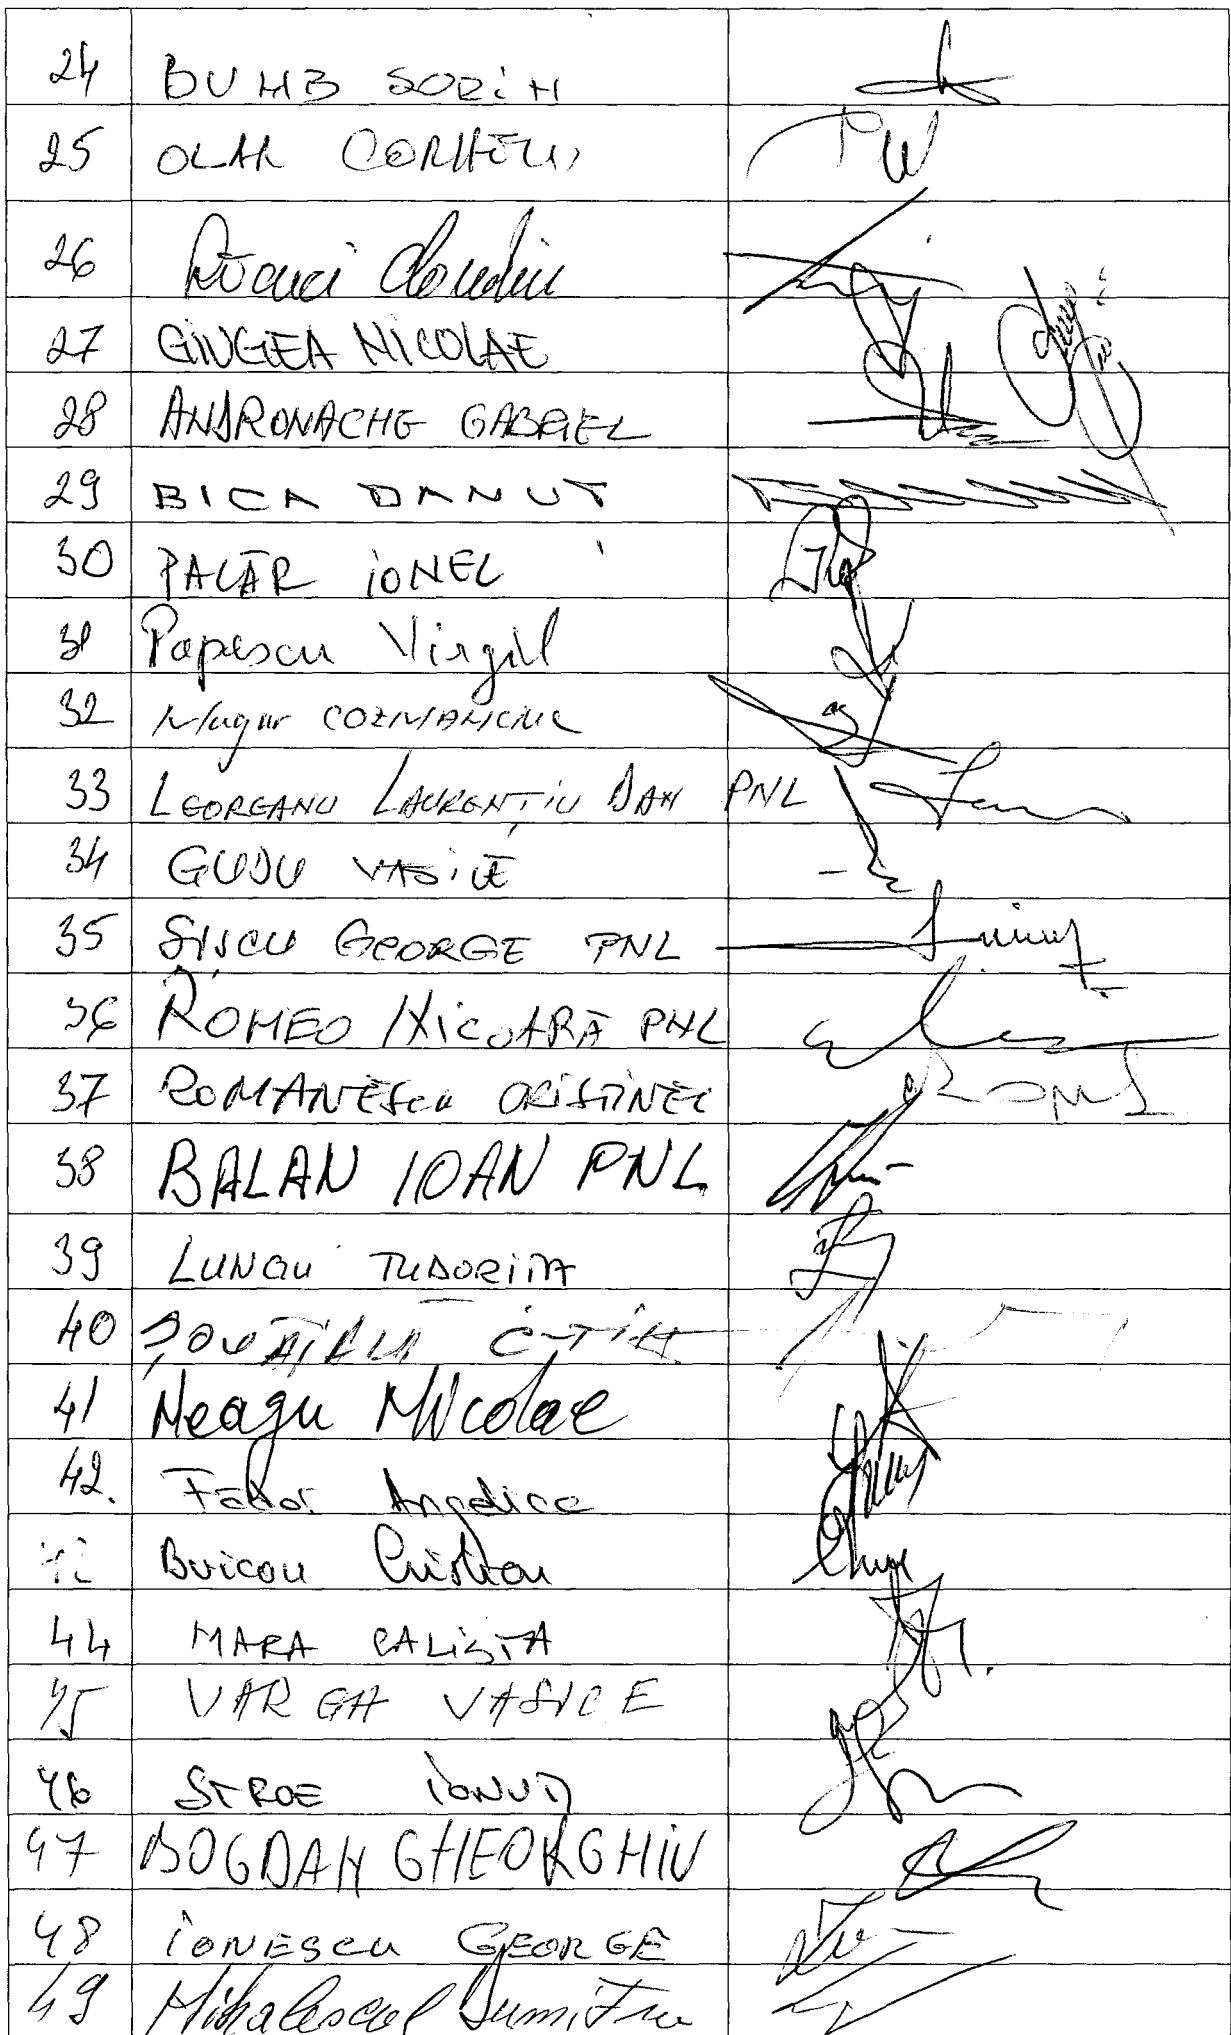 24 BUMB SORIN
25 OLAR CORNELIU
26 Răcuci Claudiu
27 GINGEA NICOLAE
28 ANDRONACHE GABRIEL
29 BICA DANUT
30 PALĂR IONEL
31 Popescu Virgil
32 Mugur COZMANCIUC
33 LEOREANU LAURENȚIU DAN PNL
34 GUDU VASILE
35 SIȘCU GEORGE PNL
36 ROMEO NICOARĂ PNL
37 ROMANESCU CRISTINEL
38 BALAN IOAN PNL
39 LUNGU TUDORIȚA
40 ȘOVĂIALĂ C-TIN
41 Neagu Nicolae
42. Fador Angelica
Buican Cristian
44 MARA CALISTA
45 VARGA VASILE
46 STROE IONUȚ
47 BOGDAN GHEORGHIU
48 IONESCU GEORGE
49 Mihalescul Dumitru